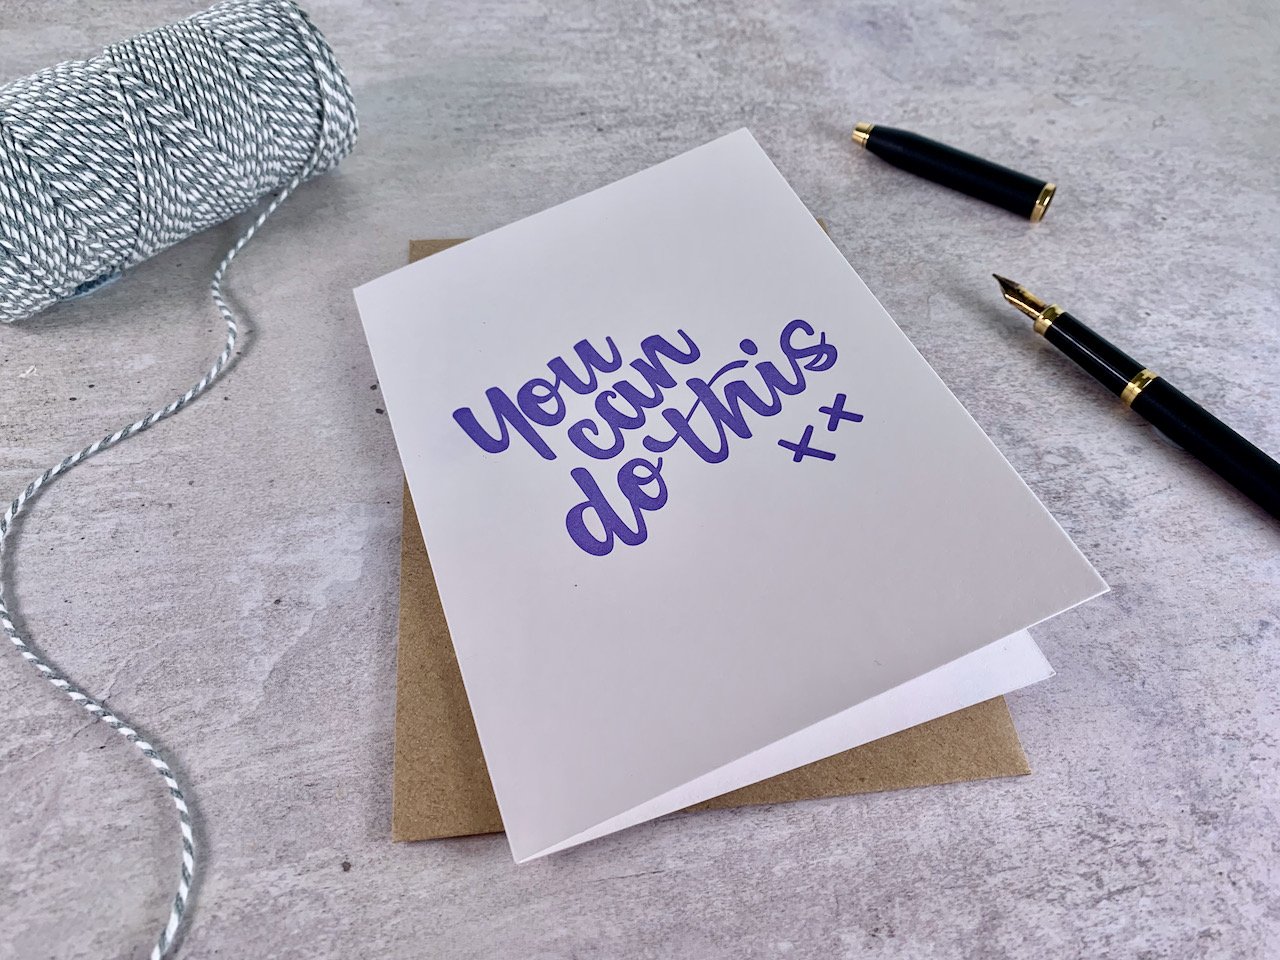 You
can
do this
xx